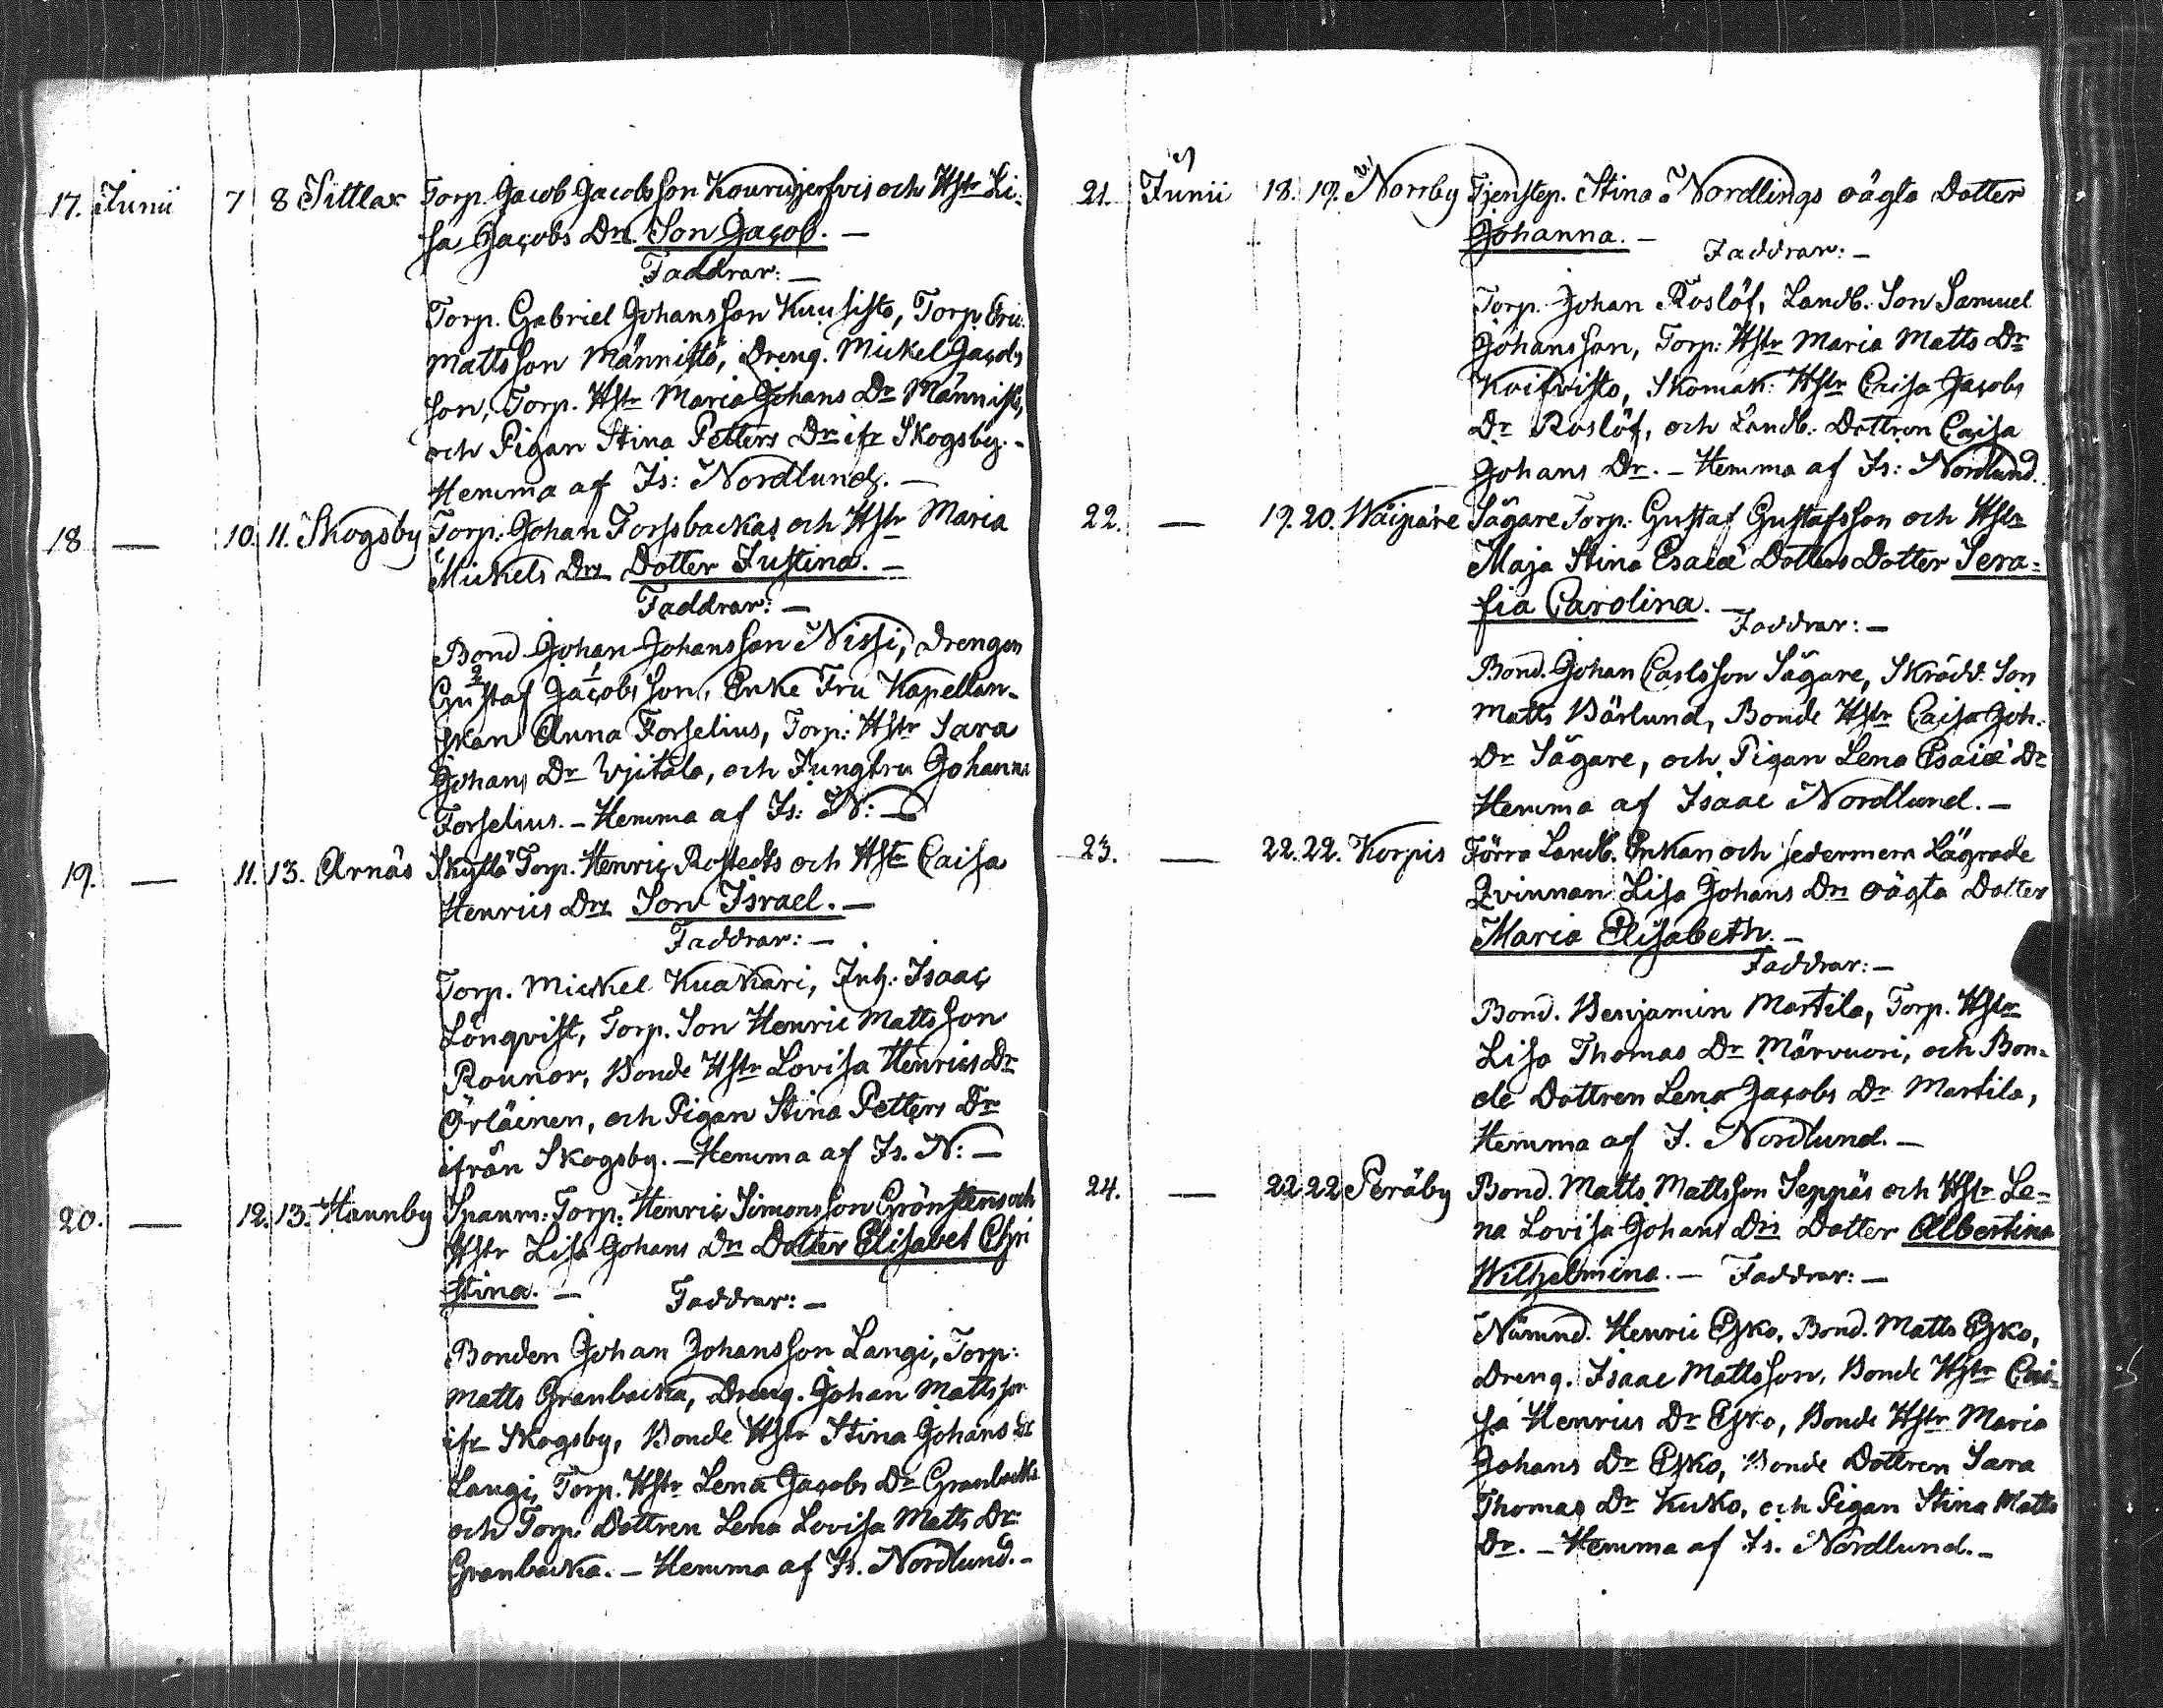 17. Junii 7 8 Sittlax Torp. Jacob Jacobsson Kourujerfvis och Hstr Li-
sa Jacobs Drs Son Jacob. —
Faddrar: —
Torp. Gabriel Johansson Kuusisto, Torp. Eric
Mattsson Männistö, Dreng. Mickel Jacobs
son, Torp. Hstr Maria Johans Dr Männistö,
och Pigan Stina Petters Dr ifr Skogsby. -
Hemma af Is: Nordlund. —
18 — 10. 11. Skogsby Torp. Johan Forssbackas och Hstr Maria
Mickels Drs Dotter Justina. —
Faddrar: —
Bond Johan Johansson Nissi, Drengen
Gustaf Jacobsson, Enke Fru Kapellan-
skan Anna Forselius, Torp: Hstr Sara
Johans Dr Ujitalo, och Jungfru Johanna
Forselius. — Hemma af Is: N: —
19. — 11. 13. Arnäs Skyttä Torp. Henric Rostedts och Hstr Caisa
Henrics Drs Son Israel. —
Faddrar: —
Torp. Mickel Kuakari, Inh. Isaac
Lönqvist, Torp. Son Henric Mattsson
Rounor, Bonde Hstr Lovisa Henrics Dr
Örläinen, och Pigan Stina Petters Dr
ifrån Skogsby. — Hemma af Is. N: —
20. — 12. 13. Hannby Spanm: Torp. Henric Simonsson Grönstens och
Hstr Lisa Johans Dr Dotter Elisabet Chri
stina. — Faddrar: —
Bonden Johan Johansson Langi, Torp:
Matts Granbacka, Dreng. Johan Mattsson
ifr Skogsby, Bonde Hstr Stina Johans Dr
Langi, Torp. Hstr Lena Jacobs Dr Granbacka
och Torp. Dottren Lena Lovisa Matts Dr
Granbacka. — Hemma af Is. Nordlund. —
21. Junii 18. 19. Norrby Tjenstep. Stina Nordlings oägta Dotter
Johanna. — Faddrar: —
Torp. Johan Roslöf, Landb. Son Samuel
Johansson, Torp: Hstr Maria Matts Dr
Koifvisto, Skomak: Hstr Caisa Jacobs
Dr Roslöf, och Landb. Dottren Caisa
Johans Dr. — Hemma af Is: Nordlund.
22. — 19. 20. Wäipäre Sägare Torp. Gustaf Gustafsson och Hstr
Maja Stina Esaiæ Dotters Dotter Sera-
fia Carolina. — Faddrar: —
Bond. Johan Carlsson Sägare, Skrädd. Son
Matts Bärlund, Bonde Hstr Caisa Joh.
Dr Sägare, och Pigan Lena Esaiæ Dr
Hemma af Isaac Nordlund. —
23. — 22. 22. Korpis Förra Landb. Enkan och sedermera Lägrade
Qvinnan Lisa Johans Drs oägta Dotter
Maria Elisabeth. —
Faddrar: —
Bond. Benjamin Martila, Torp. Hstr
Lisa Thomas Dr Märvuori, och Bon-
de Dottren Lena Jacobs Dr Martila,
Hemma af I. Nordlund. —
24. — 22 22 Peräby Bond. Matts Mattsson Seppäs och Hstr Le-
na Lovisa Johans Drs Dotter Albertina
Wilhelmina. — Faddrar: —
Nämnd. Henric Esko, Bond. Matts Esko,
Dreng. Isaac Mattsson, Bonde Hstr Cai-
sa Henrics Dr Esko, Bonde Hstr Maria
Johans Dr Esko, Bonde Dottren Sara
Thomas Dr Kuko, och Pigan Stina Matts
Dr. — Hemma af Is. Nordlund. —